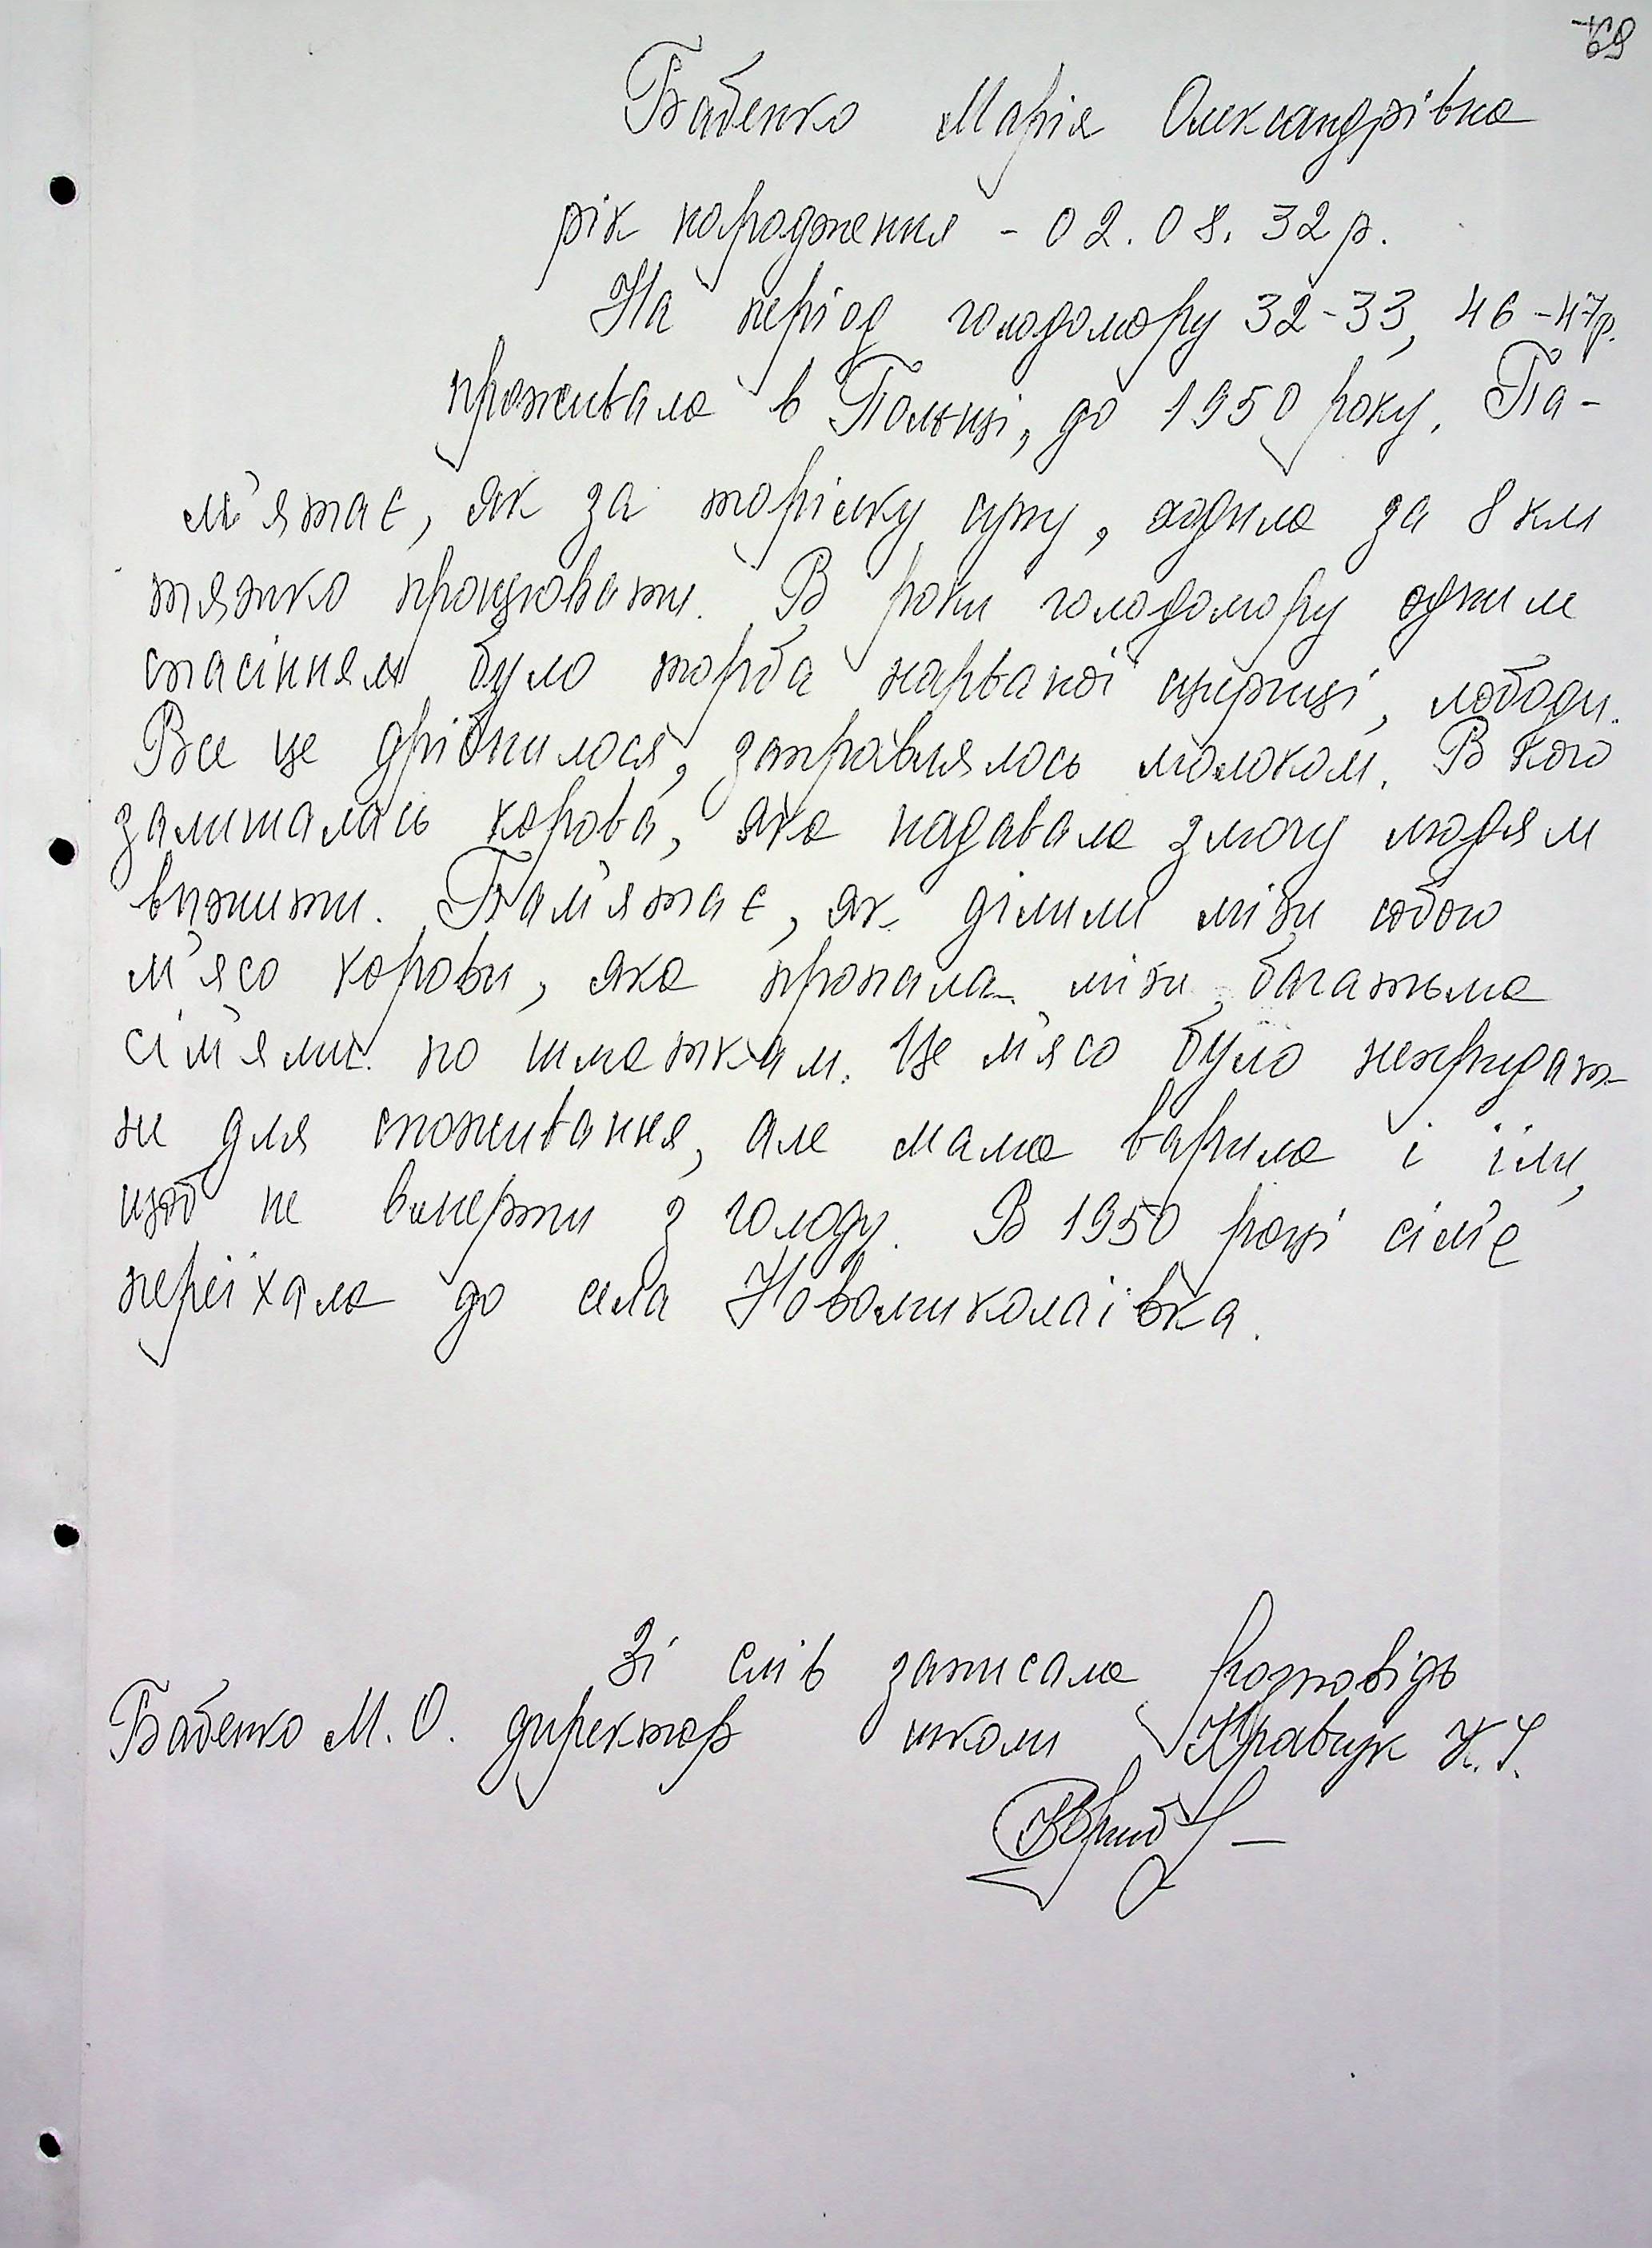 69
Бабенко Марія Олександрівна
рік народження - 02.08.32 р.
На період голодомору 32-33, 46-47р.
проживала в Польщі, до 1950 року. Па-
м'ятає, як за торілку супу, ходила за 8 км
тяжко працювати. В роки голодомору одним
спасінням було торба нарваної щириці, лободи.
Все це дрібнилося, заправлялось молоком. В кого
залишалась корова, яка надавала змогу людям
вижити. Пам'ятає, як ділили між собою
м'ясо корови, яка пропала між багатьма
сім'ями по шматкам. Це м'ясо було непридат-
не для споживання, але мама варила і їли,
щоб не вмерти з голоду. В 1950 році сім'я
переїхала до села Новомиколаївка.
Зі слів записала розповідь
Бабенко М.О. директор школи Кравчук К.Г.